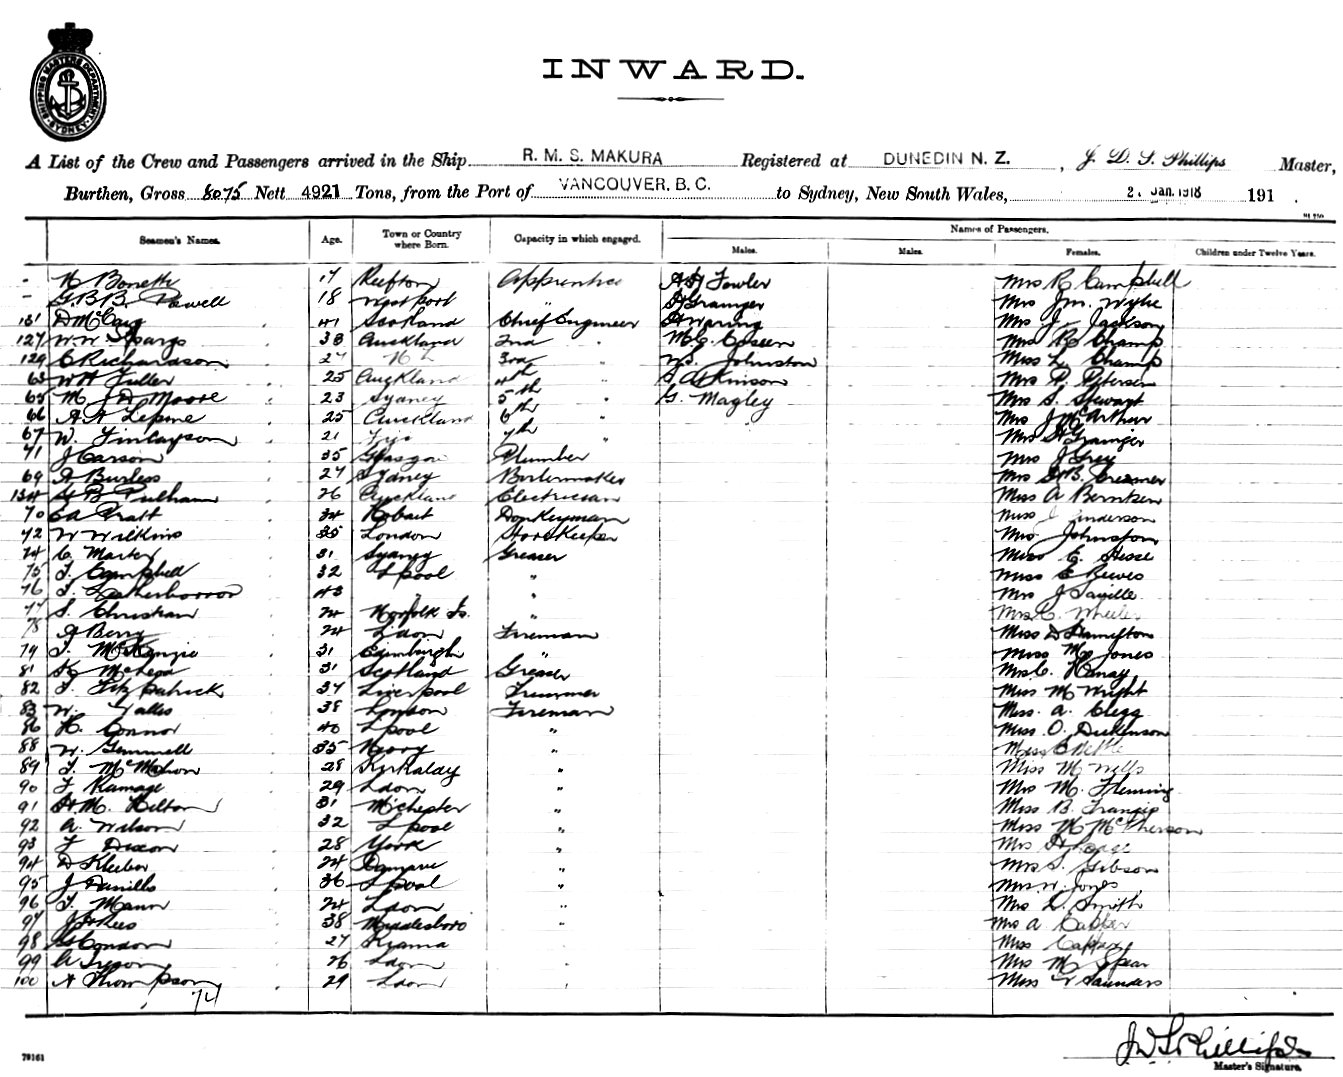 SHIPPING MASTERS DEPARTMENT SYDNEY
INWARD.
A List of the Crew and Passengers arrived in the Ship R. M. S. MAKURA Registered at DUNEDIN N. Z., J. D. S. Phillips Master,
Burthen, Gross 8075 Nett 4921 Tons, from the Port of VANCOUVER, B. C. to Sydney, New South Wales, Jan. 1918 191 .
Seamen's Names. Age. Town or Country where Born. Capacity in which engaged. Names of Passengers.
Males. Males. Females. Children under Twelve Years.
- 17 Reefton Apprentice Fowler Mrs R Campbell
- G.B.B. Powell 18 Westport " H Grainger Mrs Jm. Wylie
131 D McCaig 41 Scotland Chief Engineer H Waring Mrs J Jackson
127 W.W. Spargo 38 Auckland 2nd " Mrs R Champ
129 C Richardson 27 3rd " Johnston Miss L Champ
63 W H Fuller 25 Auckland 4th " Atkinson Mrs P. Petersen
65 M J D Moore 23 Sydney 5th " G. Magley Mrs S. Stewart
66 A. A Lepine 25 Auckland 6th " Mrs J McArthur
67 W. Finlayson 21 7th " Mrs H Grainger
71 J Carson 35 Glasgow Plumber Mrs J Grey
69 A Burless 27 Sydney Boilermaker Mrs
134 B Pulham 26 Auckland Electrician Miss A Berntsen
70 Pratt 34 Hobart Donkeyman Miss J Anderson
72 W Wilkins 35 London Storekeeper Mrs Johnston
74 C. 31 Sydney Greaser Miss E. Hesse
75 T. Campbell 32 Lpool " Miss E Reeves
76 43 " Mrs J Saville
77 S. Christian 24 Norfolk Is. " Mrs C. Wheeler
78 A Berry 24 Ldon Fireman Miss D Hamilton
79 T. McKenzie 31 Edinburgh " Miss M. Jones
81 McLeod 31 Scotland Greaser Mrs C.
82 T. Fitzpatrick 37 Liverpool Trimmer Miss M Wright
83 W. 38 London Fireman Miss. A. Clegg
86 H. Connor 40 Lpool " Miss O. Dickenson
88 W. Gemmell 35 " Miss
89 T. McMahon 28 Kirkaldy " Miss M Wells
90 Ramage 29 Ldon " Mrs M. Fleming
91 H.M. Hilton 31 M'chester " Miss B. Francis
92 A. Wilson 32 Lpool " Miss M McPherson
93 Dixon 28 York " Mrs H
94 D 24 " Mrs S. Gibson
95 J Daniells 36 Lpool " Mrs W. Jones
96 T. Mann 24 Ldon " Mrs D. Smith
97 38 Middlesboro " Mrs A Capper
98 Condon 27 Kiama " Miss Capper
99 26 Ldon " Mrs M. Spear
100 A Thompson 29 Ldon " Miss Saunders
74
J D S Phillips
Master's Signature.
79161